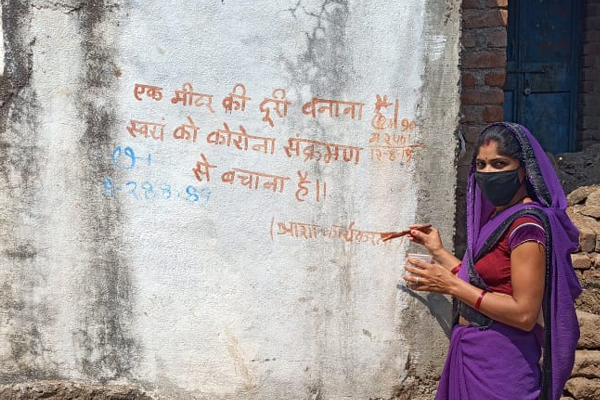 एक मीटर की दूरी बनाना है।
स्वयं को कोरोना संक्रमण
से बचाना है॥
(आशा कार्यकर्ता